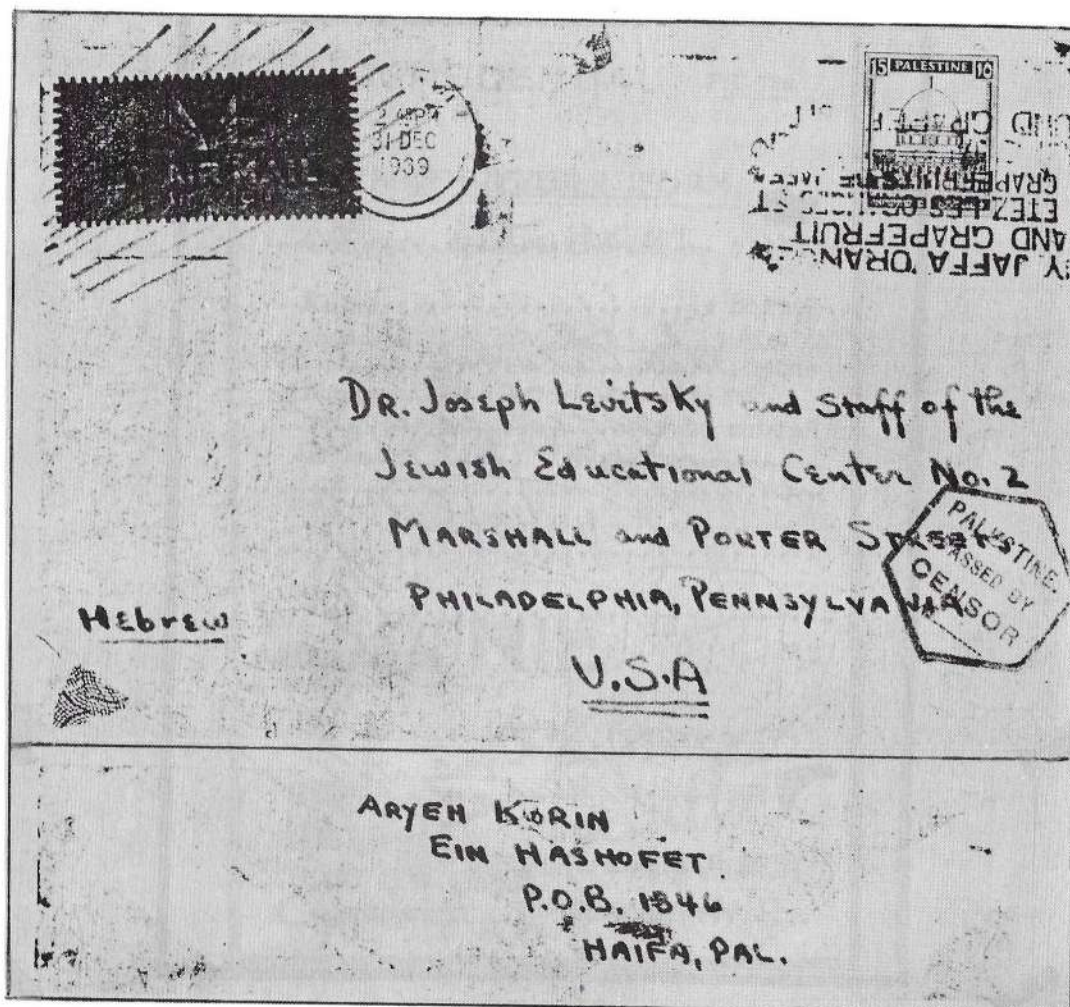 AIR MAIL
2 45PM
31 DEC
1939
15 PALESTINE
AND GRAPEFRUIT
Dr. Joseph Levitsky and Staff of the
Jewish Educational Center No. 2
MARSHALL and PORTER STREETS
PHILADELPHIA, PENNSYLVANIA
U.S.A
Hebrew
PALESTINE.
PASSED BY
CENSOR
ARYEH KORIN
EIN HASHOFET
P.O.B. 1846
HAIFA, PAL.